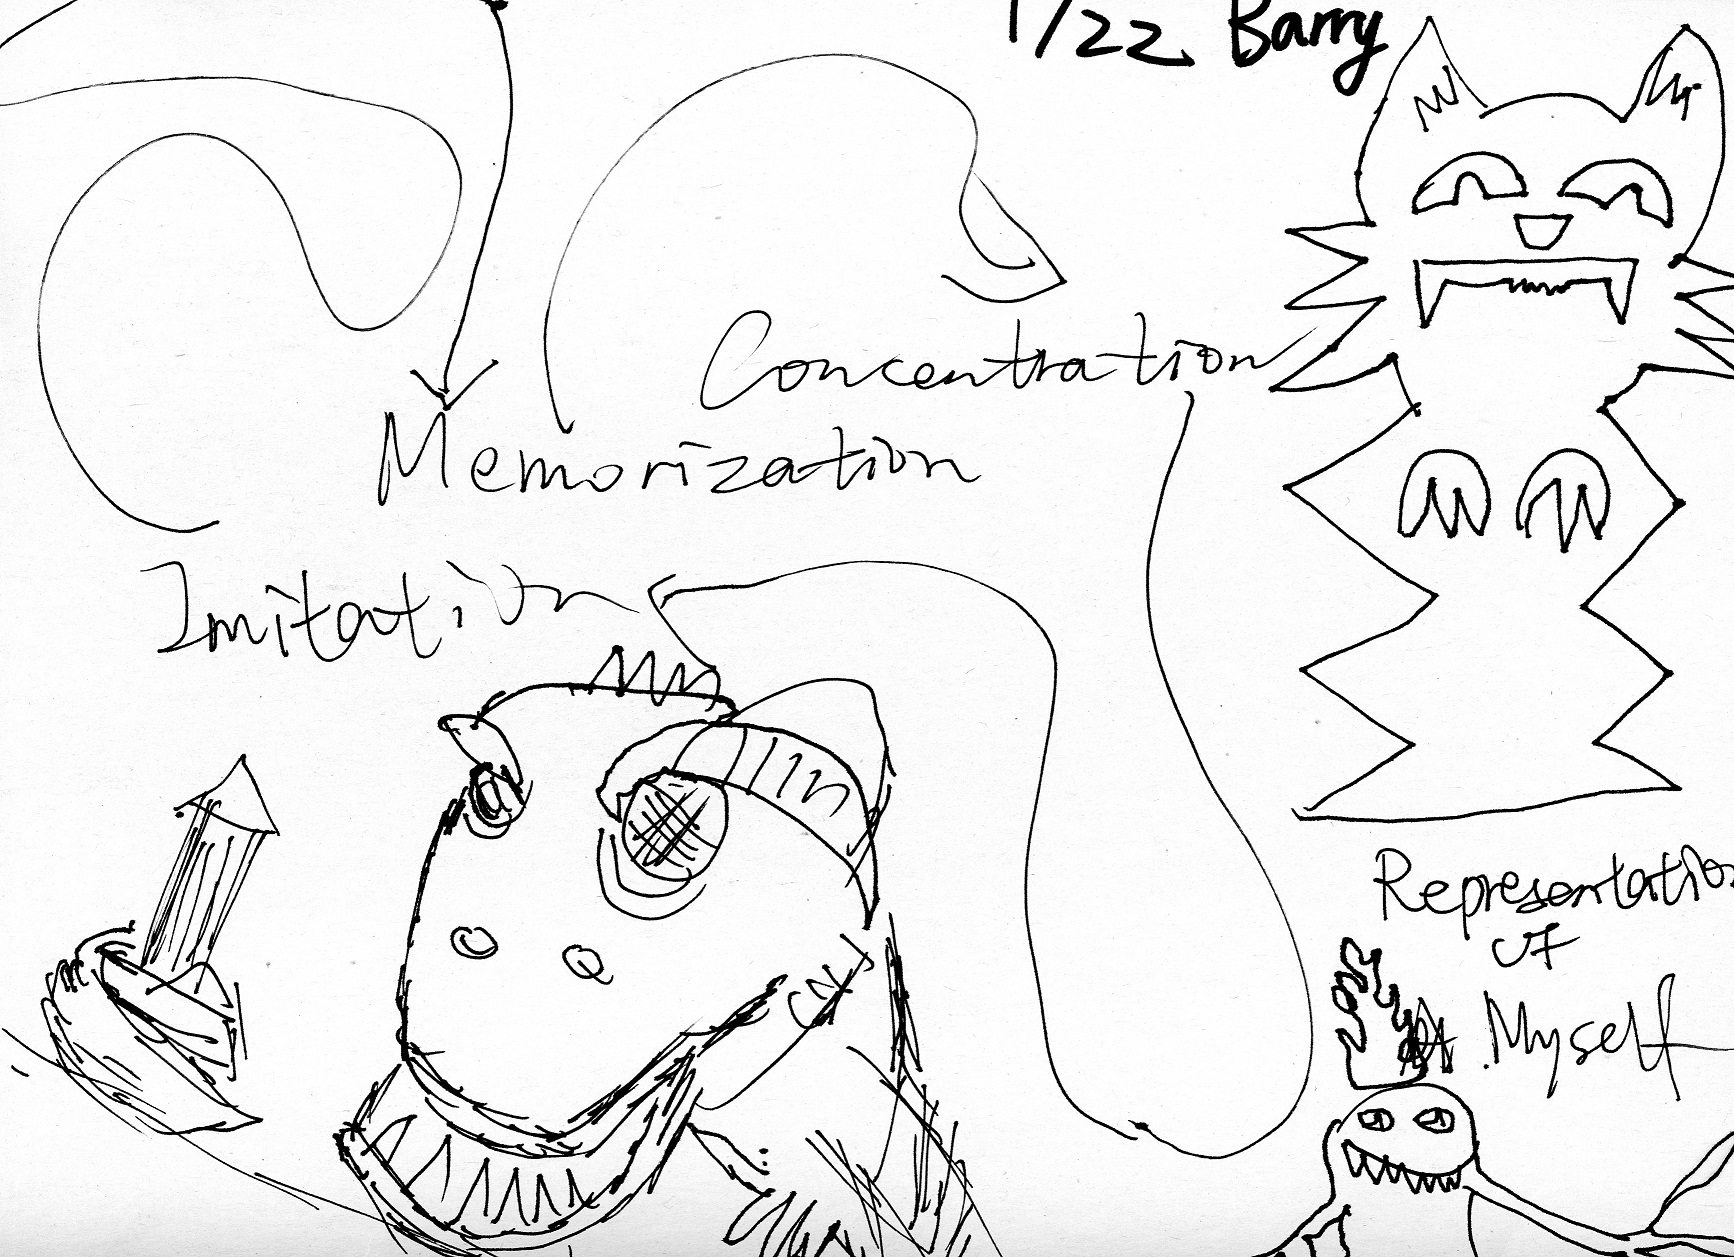 1/22 Barry
Concentration
Memorization
Imitation
Representation
of
Myself